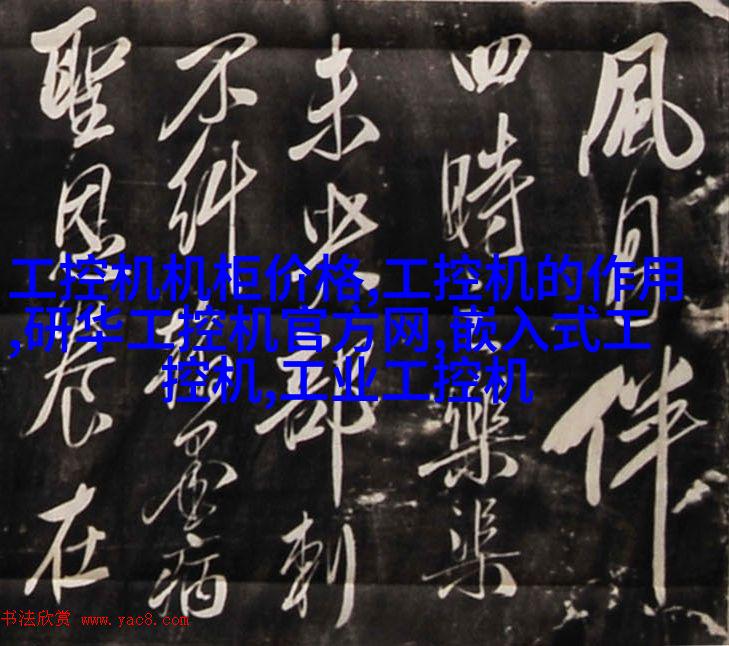 風月伴
四時樂渠
未央部刺
不糾墨病
聖恩在
工控机机柜价格,工控机的作用
,研华工控机官方网,嵌入式工
控机,工业工控机
书法欣赏 www.yac8.com